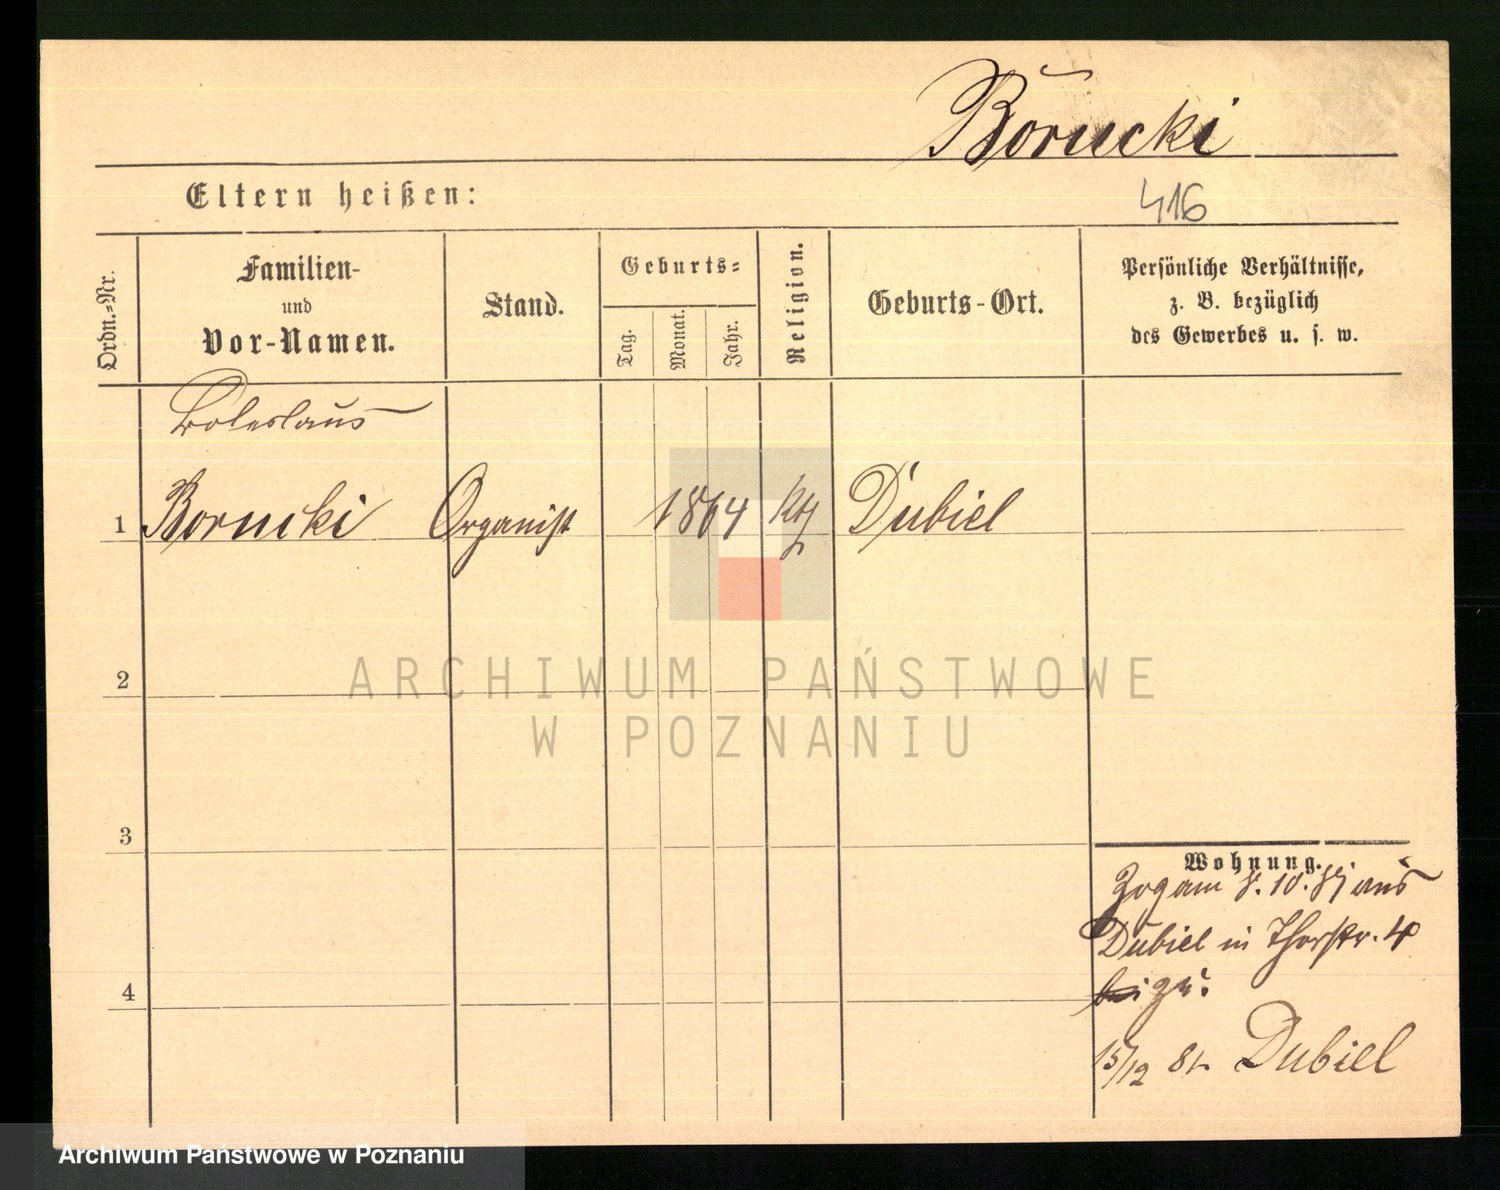 Borucki
416
Eltern heißen:
Ordn.-Nr.
Familien-
und
Vor-Namen.
Stand.
Geburts-
Tag.
Monat.
Jahr.
Religion.
Geburts-Ort.
Persönliche Verhältnisse,
z. B. bezüglich
des Gewerbes u. s. w.
Boleslaus
1 Borucki Organist 1864 Dubiel
2
3
4
Wohnung.
Zog am 8. 10. aus
Dubiel in Thorstr. 4
zu.
15/12 81 Dubiel
ARCHIWUM PAŃSTWOWE
W POZNANIU
Archiwum Państwowe w Poznaniu